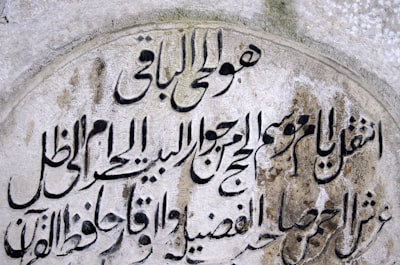 هو الحي الباقي
انتقل ايام موسم الحج من جوار البيت الحرام الى ظل
عرش الرحمن صاحب الفضيلة والوقار حافظ القرآن